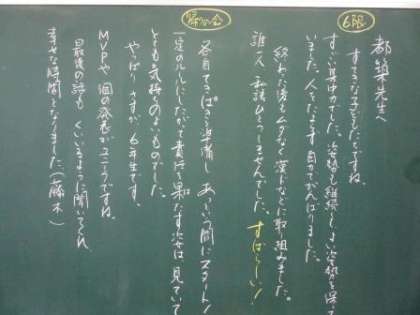 6限
都築先生へ
すてきな子どもたちですね。
すごい集中力でした。姿勢を継続し、よい姿勢を保って
いました。人をたよらず自力でがんばりました。
終わった後もムダなく漢ドなどに取り組みました。
誰一人私語ひとつしませんでした。すばらしい!
帰りの会
各自てきぱきと準備し、あっという間にスタート!
一定のルールにしたがって責任を果たす姿は、見ていて
とても気持ちのよいものでした。
やっぱりさすが6年生です。
MVPや個の発表がユニークですね。
最後の話もくいいるように聞いてくれ、
幸せな時間となりました。(藤木)